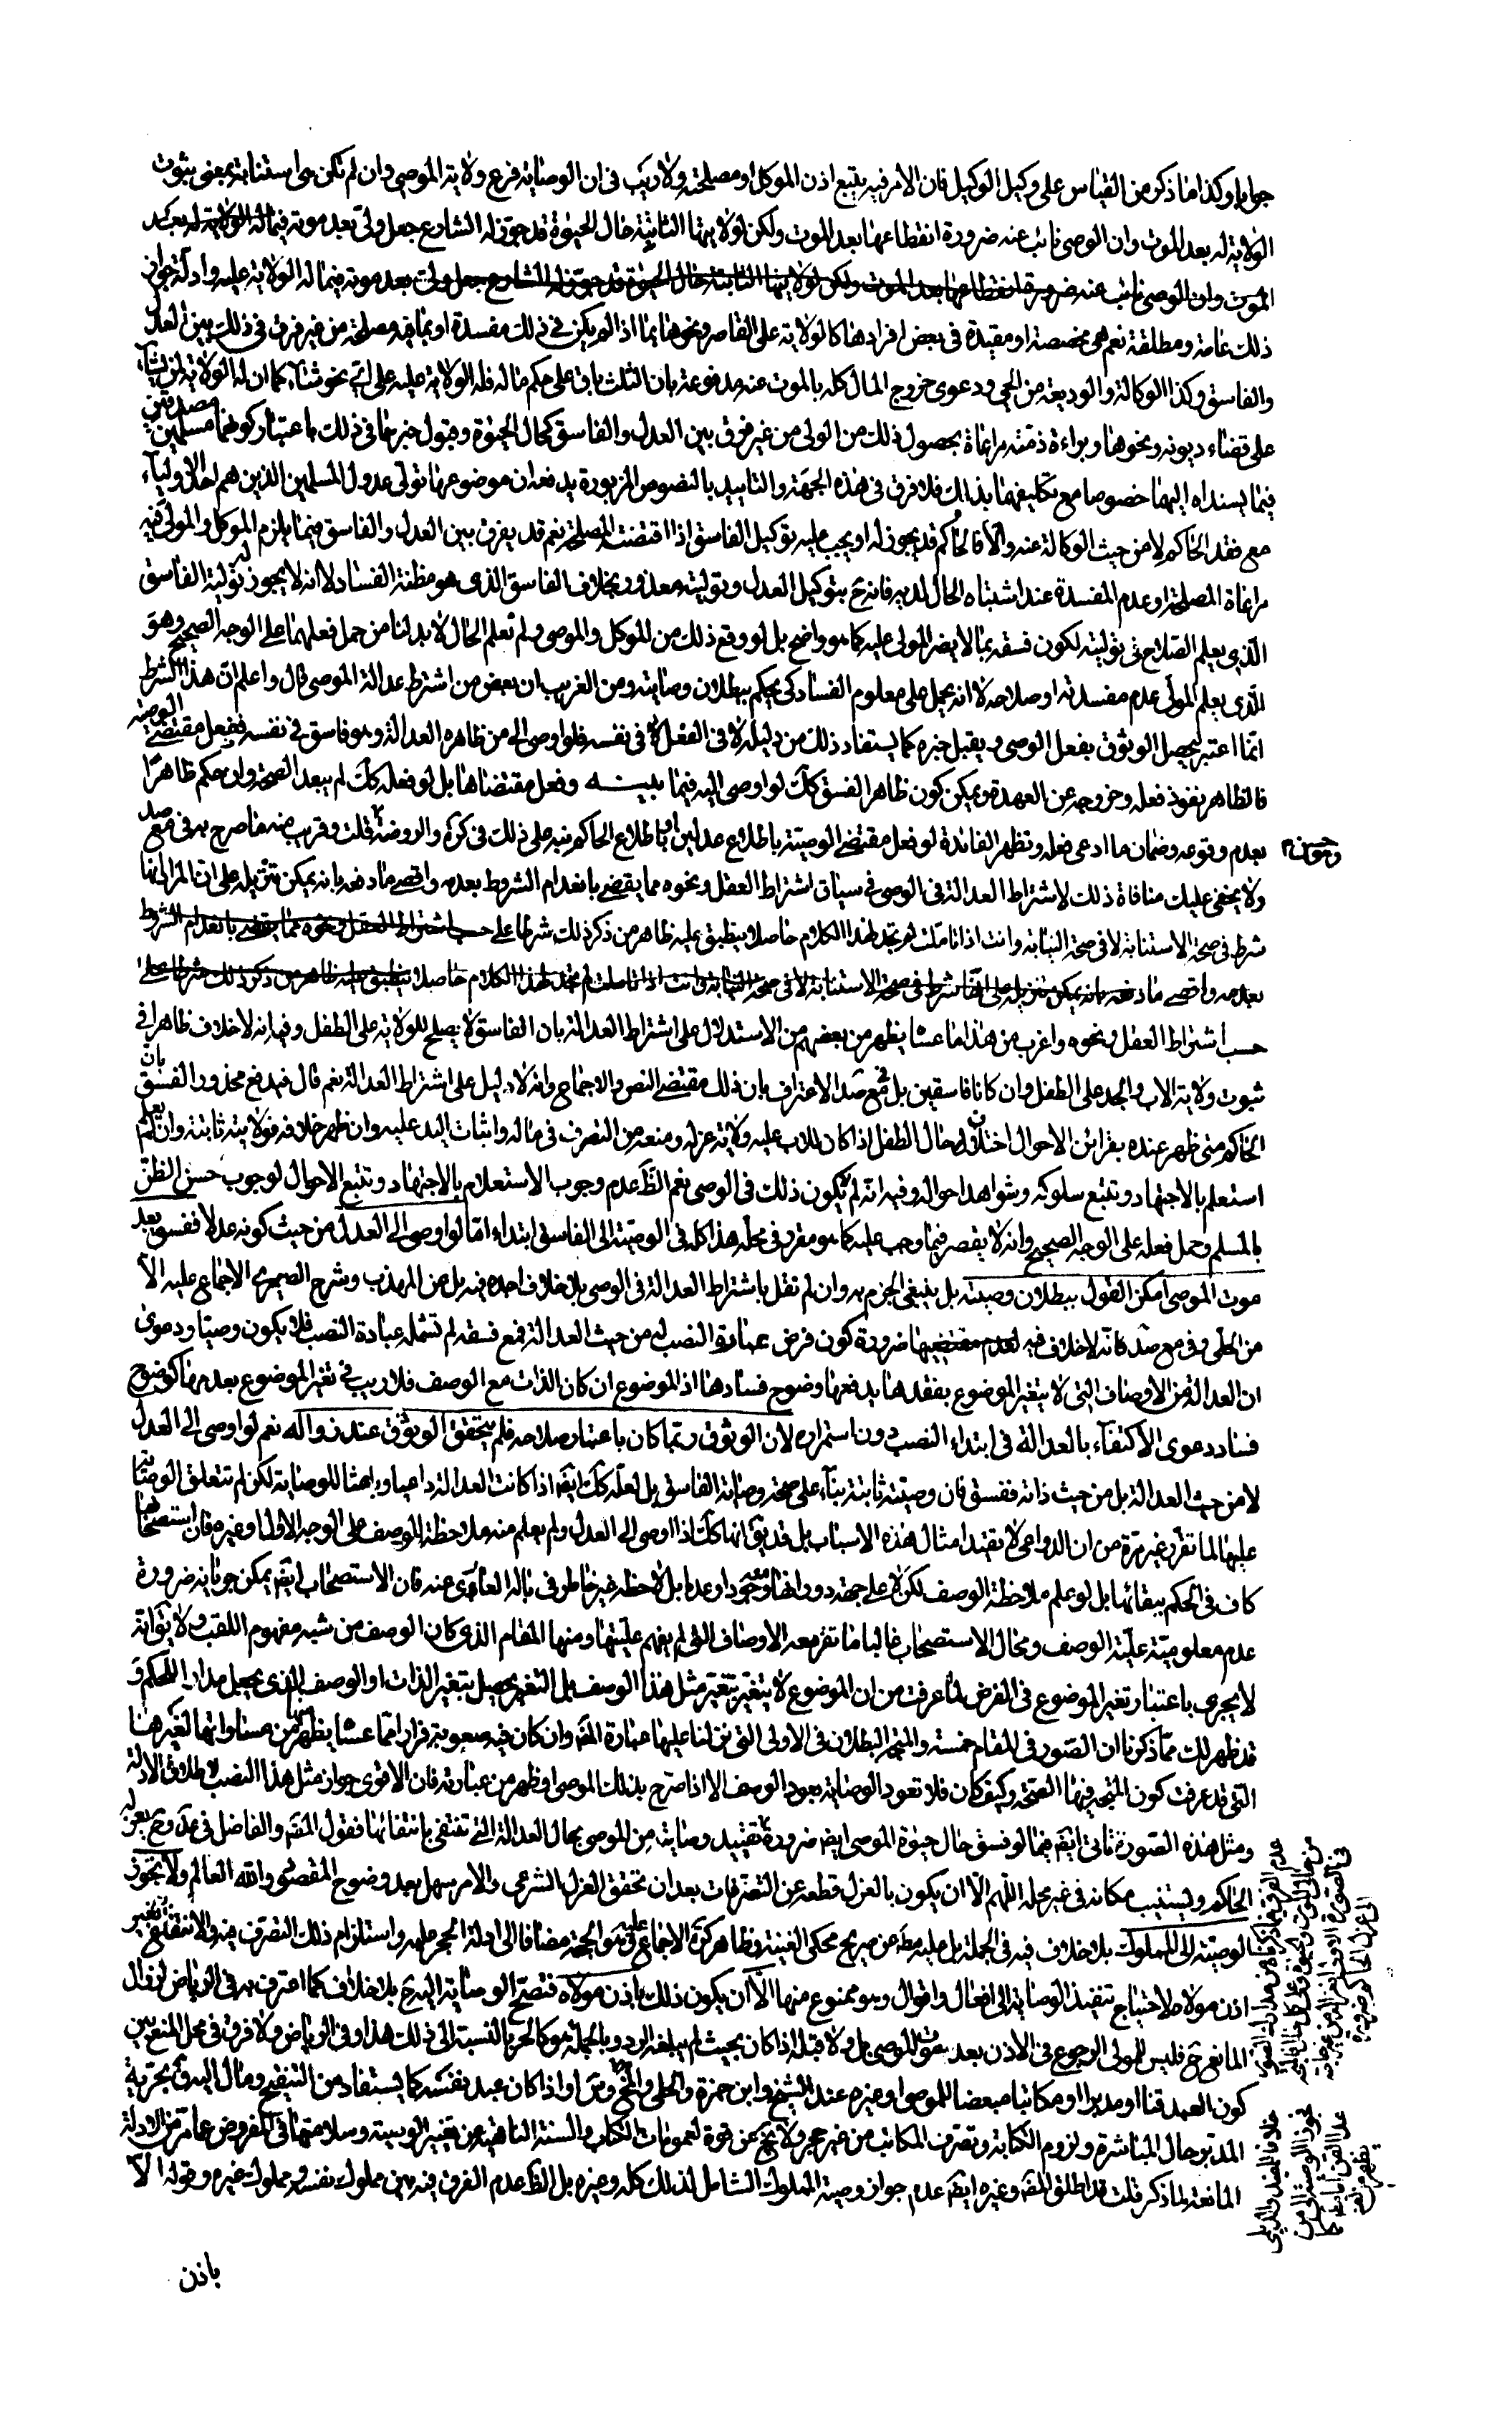 جوابا وكذا ما ذكر من القياس على وكيل الوكيل فان الامر فيه يتبع اذن الموكل او مصلحته ولا ريب في ان الوصاية فرع ولاية الموصي وان لم تكن هي استنابة بمعنى ثبوت
الولاية له بعد الموت وان الوصي نائب عنه ضرورة انقطاعها بعد الموت ولكن لولايتها الثابتة حال الحيوة قد جوز له الشارع جعل ولي بعد موته فيما له الولاية له بعد
الموت وان الوصي نائب عنه ضرورة انقطاعها بعد الموت ولكن لولايتها الثابتة حال الحيوة قد جوز له الشارع جعل ولي بعد موته فيما له الولاية عليه وادلة جواز
ذلك عامة ومطلقة نعم هي مخصصة او مقيدة في بعض افرادها كالولاية على القاصر ونحوها بما اذا لم يكن في ذلك مفسدة او بما فيه مصلحة من غير فرق في ذلك بين العدل
والفاسق وكذا الوكالة والوديعة من الحي ودعوى خروج المال كله بالموت عنه مدفوعة بان الثلث باق على حكم ماله فله الولاية عليه على اي نحو شاء كما ان له الولاية لمن يشاء
على قضاء ديونه ونحوها وبراءة ذمته مراعاة بحصول ذلك من الولي من غير فرق بين العدل والفاسق كحال الحيوة وقبول خبرهما في ذلك باعتبار كونهما مسلمين مصدقين
فيما يسنداه اليهما خصوصا مع تكليفهما بذلك فلا فرق في هذه الجهة والتاييد بالنصوص المزبورة يدفعه ان موضوعها تولي عدول المسلمين الذين هم احد الاولياء
مع فقد الحاكم لا من حيث الوكالة عنه والا فالحاكم قد يجوز له او يجب عليه توكيل الفاسق اذا اقتضت المصلحة نعم قد يفرق بين العدل والفاسق فيما يلزم الموكل والمولي فيه
مراعاة المصلحة او عدم المفسدة عند اشتباه الحال لديه فانه ح بتوكيل العدل وتوليته معذور بخلاف الفاسق الذي هو مظنة الفساد لا انه لا يجوز له تولية الفاسق
الذي يعلم الصلاح في توليته لكون فسقه بما لا يضر المولى عليه كما هو واضح بل لو وقع ذلك من الموكل والموصي ولم تعلم الحال لا بد لنا من حمل فعلهما على الوجه الصحيح وهو
الذي يعلم المولي عدم مفسدته او صلاحه لا انه يحمل على معلوم الفساد كي يحكم ببطلان وصايته ومن الغريب ان بعض من اشترط عدالة الموصى قال واعلم ان هذا الشرط
انما اعتبر ليحصل الوثوق بفعل الوصي ويقبل خبره كما يستفاد ذلك من دليله لا في الفعل في نفسه فلو اوصى الى من ظاهره العدالة وهو فاسق في نفسه ففعل مقتضى الوصية
فالظاهر نفوذ فعله وخروجه عن العهدة ويمكن كون ظاهر الفسق كك لو اوصى اليه فيما بينه وفعل مقتضاها بل لو فعله كك لم يبعد الصحة وان حكم ظاهرا
بعدم وقوعه وضمان ما ادعى فعله وتظهر الفائدة لو فعل مقتضى الوصية باطلاع عدلين او باطلاع الحاكم نبه على ذلك في كره والروضة قلت وقريب منه ما صرح به في مع صد
ولا يخفى عليك منافاة ذلك لاشتراط العدالة في الوصي في سياق اشتراط العقل ونحوه مما يقضي بانعدام الشروط بعدمه واقصى ما دفعه بانه يمكن تنزيله على ان المراد انها
شرط في صحة الاستنابة لا في صحة النيابة وانت اذا تاملت لم تجد لهذا الكلام حاصلا ينطبق عليه ظاهر من ذكر ذلك شرطا على حسب اشتراط العقل ونحوه مما يقضي بانعدام الشروط
بعدمه واقصى ما دفعه بانه يمكن تنزيله على انها شرط في صحة الاستنابة لا في صحة النيابة وانت اذا تاملت لم تجد لهذا الكلام حاصلا ينطبق عليه ظاهر من ذكر ذلك شرطا على
حسب اشتراط العقل ونحوه واغرب من هذا ما عساه يظهر من بعضهم من الاستدلال على اشتراط العدالة بان الفاسق لا يصلح للولاية على الطفل وفيه انه لا خلاف ظاهرا في
ثبوت ولاية الاب والجد على الطفل وان كانا فاسقين بل في مع صد الاعتراف بان ذلك مقتضى النص والاجماع وانه لا دليل على اشتراط العدالة نعم قال فيدفع محذور الفسق بان
الحاكم متى ظهر عنده بقرائن الاحوال اختلال حال الطفل اذا كان للاب عليه ولاية عزله ومنعه من التصرف في ماله واثبات اليد عليه وان ظهر خلافه فولايته ثابتة وان لم يعلم
استعلم بالاجتهاد وتتبع سلوكه وشواهد احواله وفيه انه لم لا يكون ذلك في الوصي نعم الظ عدم وجوب الاستعلام بالاجتهاد وتتبع الاحوال لوجوب حسن الظن
بالمسلم وحمل فعله على الوجه الصحيح وانه لا يقصر فيما وجب عليه كما هو مقرر في محله هذا كله في الوصية الى الفاسق ابتداء اما لو اوصى الى العدل من حيث كونه عدلا ففسق بعد
موت الموصي امكن القول ببطلان وصيته بل ينبغي الجزم به وان لم نقل باشتراط العدالة في الوصي بلا خلاف اجده فيه بل عن المهذب وشرح الصيمري الاجماع عليه الا
من الحلي وفي مع صد كانه لا خلاف فيه لعدم مقتضيها ضرورة كون فرض عبارة النصب له من حيث العدالة فمع فسقه لم تشمله عبارة النصب فلا يكون وصيا ودعوى
ان العدالة من الاوصاف التي لا يتغير الموضوع بفقدها يدفعها وضوح فسادها اذ الموضوع ان كان الذات مع الوصف فلا ريب في تغير الموضوع بعدمها كوضوح
فساد دعوى الاكتفاء بالعدالة في ابتداء النصب دون استمراره لان الوثوق ربما كان باعتبار صلاحه فلم يتحقق الوثوق عند زواله نعم لو اوصى الى العدل
لا من حيث العدالة بل من حيث ذاته ففسق فان وصيته ثابتة بناء على صحة وصاية الفاسق بل لعله كك ايضا اذا كانت العدالة داعيا وباعثا للوصاية لكن لم تتعلق الوصاية
عليها لما تقرر غير مرة من ان الدواعي لا تقيد امثال هذه الاسباب بل قد يق انها كك اذا اوصى الى العدل ولم يعلم منه ملاحظة الوصف على الوجه الاول او غيره فان استصحابها
كاف في الحكم ببقائها بل لو علم ملاحظة الوصف لكن لا على جهة دورانها معه وجودا وعدما بل لاحظه غير خاطر في باله العاري عنه فان الاستصحاب ايضا يمكن جريانه ضرورة
عدم معلومية علية الوصف ومحال الاستصحاب غالبا ما تغير معه الاوصاف التي لم يفهم عليتها ومنها المقام الذي كان الوصف من شبه مفهوم اللقب ولا يق انه
لا يجري باعتبار تغير الموضوع في الفرض لما عرفت من ان الموضوع لا يتغير بتغير مثل هذا الوصف بل التغير يحصل بتغير الذات او الوصف الذي يجعل مدار الحكم و
قد ظهر لك مما ذكرنا ان الصور في المقام خمسة والمتجه البطلان في الاولى التي نزلنا عليها عبارة المص وان كان فيه صعوبة فرارا مما عساه يظهر منها من مساواتها لغيرها
التي قد عرفت كون المتجه فيها الصحة وكيف كان فلا تعود الوصاية بعود الوصف الا اذا صرح بذلك الموصي او ظهر من عبارته فان الاقوى جواز مثل هذا النصب لاطلاق الادلة
ومثل هذه الصورة تاتي ايضا فيما لو فسق حال حيوة الموصي ايضا ضرورة تقييد وصايته من الموصي بحال العدالة التي تنتفي بانتفائها فقول المص والفاضل في عد وح يعزله
الحاكم ويستنيب مكانه في غير محله اللهم الا ان يكون بالعزل قطعه عن التصرفات بعد ان تحقق العزل الشرعي والامر سهل بعد وضوح المقصود والله العالم ولا تجوز
الوصية الى المملوك بلا خلاف فيه في الجملة بل عليه مط عن صريح محكي الغنية وظاهر كره الاجماع عليه وهو الحجة مضافا الى ادلة الحجر عليه واستلزام ذلك التصرف فيه والانتفاع به بغير
اذن مولاه لاحتياج تنفيذ الوصاية الى افعال واقوال وهو ممنوع منها الا ان يكون ذلك باذن مولاه فتصح الوصاية اليه ح بلا خلاف كما اعترف به في الرياض لزوال
المانع ح فليس للمولى الرجوع في الاذن بعد موت الموصي بل ولا قبله اذا كان بحيث لم يبلغه الرد وبالجملة هو كالحر بالنسبة الى ذلك هذا وفي الرياض ولا فرق في محل المنع بين
كون العبد قنا او مدبرا او مكاتبا مبعضا للموصي او غيره عند الشيخ وابن حمزة والحلي واذا كان عبد نفسه كما يستفاد من التنقيح ومال اليه في بحرية
المدبر حال المباشرة ولزوم الكتابة وتصرف المكاتب من غير حجر ولا يخ عن قوة لعمومات الكتاب والسنة الناهية عن تغيير الوصية وسلامتها في المفروض عامة من الادلة
المانعة لما ذكر قلت قد اطلق المص وغيره ايضا عدم جواز وصية المملوك الشامل لذلك كله وغيره بل الظ عدم الفرق فيه بين مملوك نفسه ومملوك غيره وقوله الا
باذن